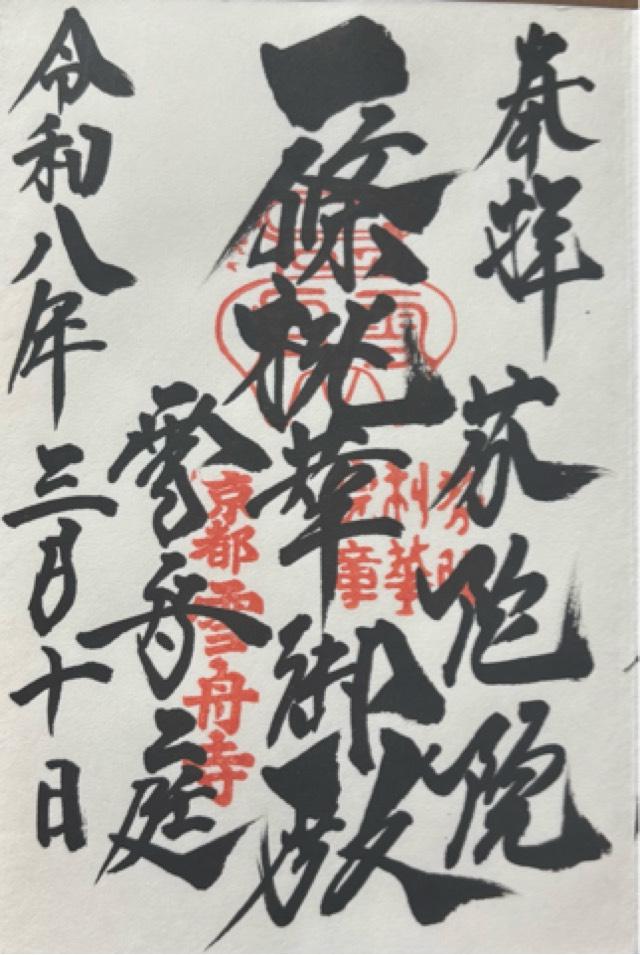 奉拝
芬陀院
一條桃華御殿
雪舟庭
令和八年三月十日
京都雪舟寺